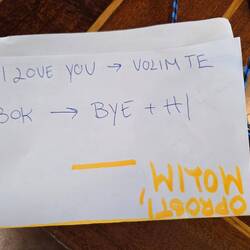 I LOVE YOU → VOLIM TE
BOK → BYE + HI
OPROSTI,
MOLIM